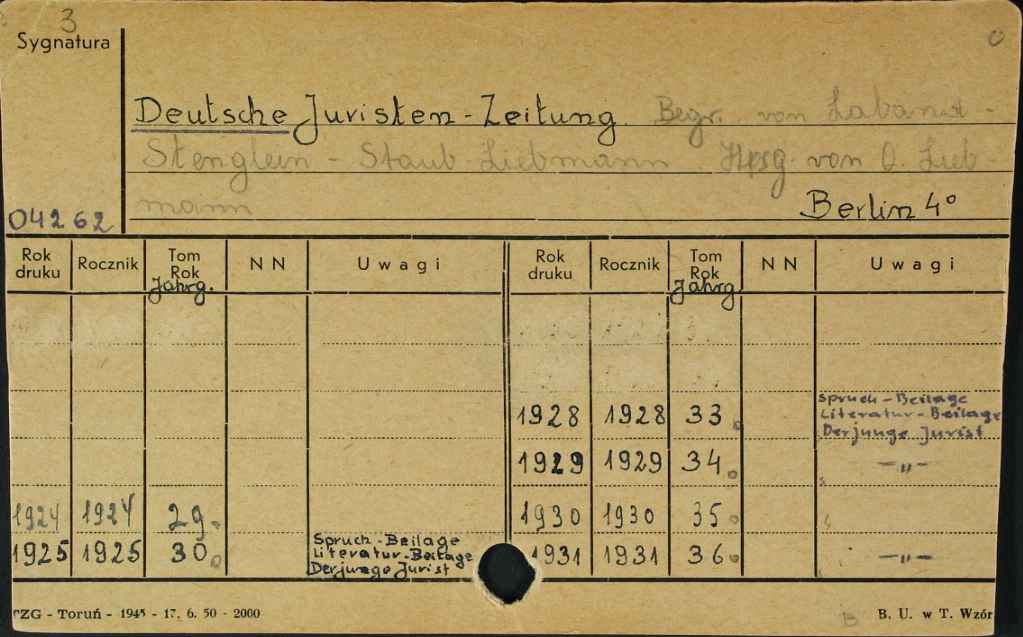 3
Sygnatura
Deutsche Juristen-Zeitung. Begr. von Laband-
Stenglein - Staub-Liebmann. Hrsg. von O. Lieb-
mann
Berlin 4°
04262
Rok druku Rocznik Tom Rok Jahrg. NN Uwagi Rok druku Rocznik Tom Rok Jahrg NN Uwagi
1928 1928 33. Spruch-Beilage
Literatur-Beilage
Der junge Jurist
1929 1929 34. -"-
1924 1924 29. 1930 1930 35.
1925 1925 30. Spruch-Beilage
Literatur-Beilage
Der junge Jurist
1931 1931 36. -"-
PZG - Toruń - 1945 - 17. 6. 50 - 2000
B. U. w T. Wzór